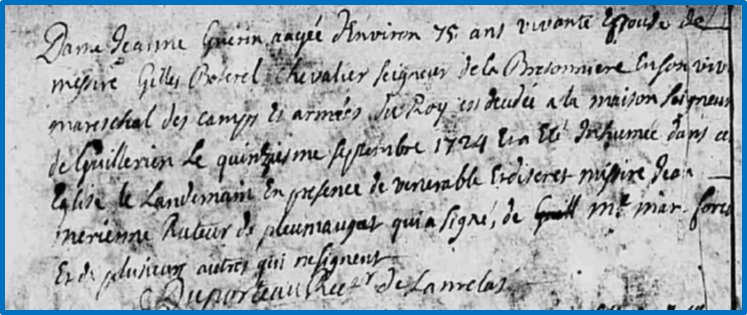 Dame Jeanne Guerin aagée d'Environ 75 ans vivante Espouse de
messire Gilles Boterel chevalier seigneur de la Bretonniere En son viv
mareschal des camps Et armées du Roy est decedée a la maison seigneur
de Guillerien Le quinziesme septembre 1724 Et a Eté Inhumée dans ce
Eglise le Landemain En presence de venerable Et discret missire Jean
merienne Recteur de pleumaugat qui a signé, de mr mar
Et de plusieurs autres qui ne signent
Duporteau Recr de Lanrelas